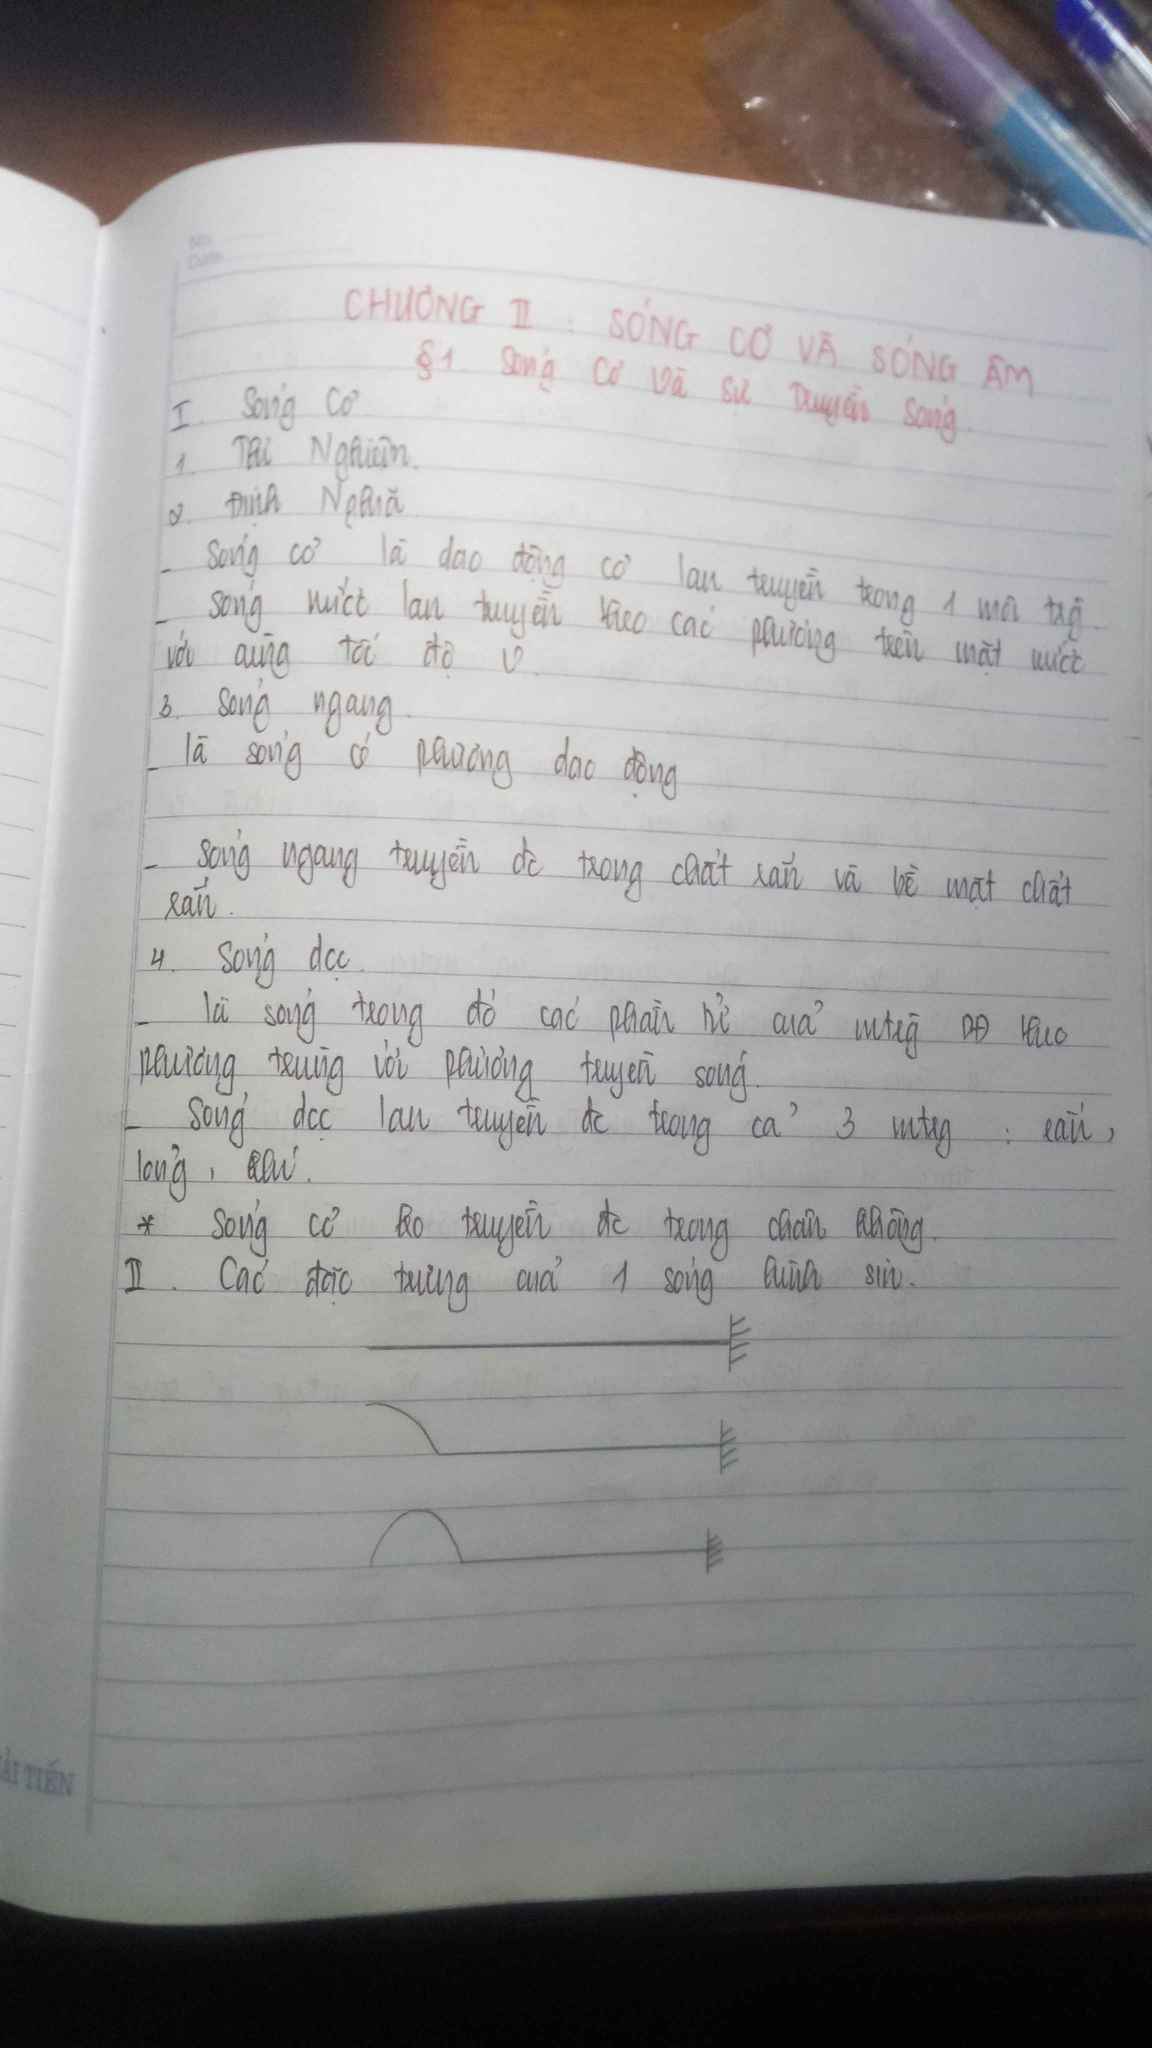 No.
Date
CHƯƠNG II : SÓNG CƠ VÀ SÓNG ÂM
§1 Sóng cơ và sự truyền sóng.
I. Sóng Cơ
1. Thí Nghiệm.
2. Định Nghĩa
_ Sóng cơ là dao động cơ lan truyền trong 1 môi trg
_ Sóng nước lan truyền theo các phương trên mặt nước
với cùng tốc độ v.
3. Sóng ngang.
_ là sóng có phương dao động
_ Sóng ngang truyền đc trong chất rắn và bề mặt chất
rắn.
4. Sóng dọc.
_ là sóng trong đó các phần tử của mtrg DĐ theo
phương trùng với phương truyền sóng.
_ Sóng dọc lan truyền đc trong cả 3 mtrg : rắn,
lỏng, khí.
* Sóng cơ ko truyền đc trong chân không.
II. Các đặc trưng của 1 sóng hình sin.
ẢI TIẾN